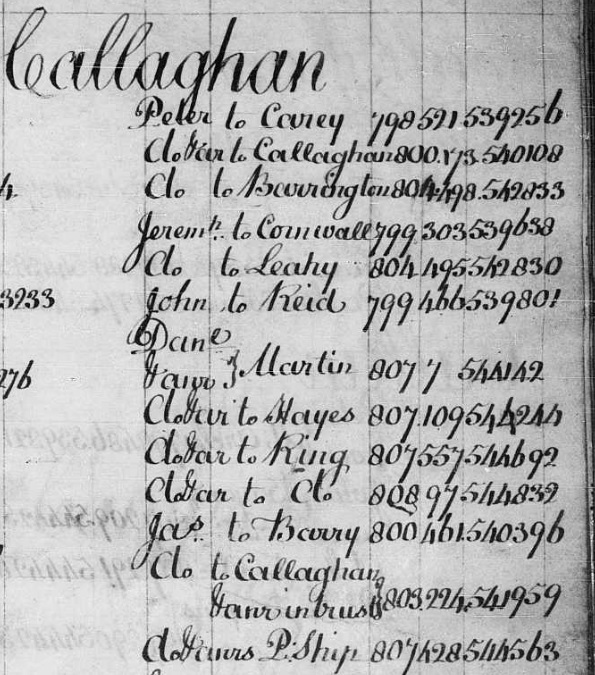 Callaghan
Peter to Carey 798 521 539256
Do & an r to Callaghan 800.173.540108
4
Do to Barrington 804.498.542833
Jerem h. to Cornwall 799 303 539638
Do to Leahy 804 495 542830
3233 John to Reid 799 466 539801
Dan e
276 & anr } Martin 807 7 544142
Do & anr to Hayes 807.109 544244
Do & anr to King 807 557 544692
Do & anr to Do 808 97 544832
Jas. to Barry 800 461.540396
Do to Callaghan
& anr in trust } 803.224.541959
Do & anrs P. Ship 807 428 544563